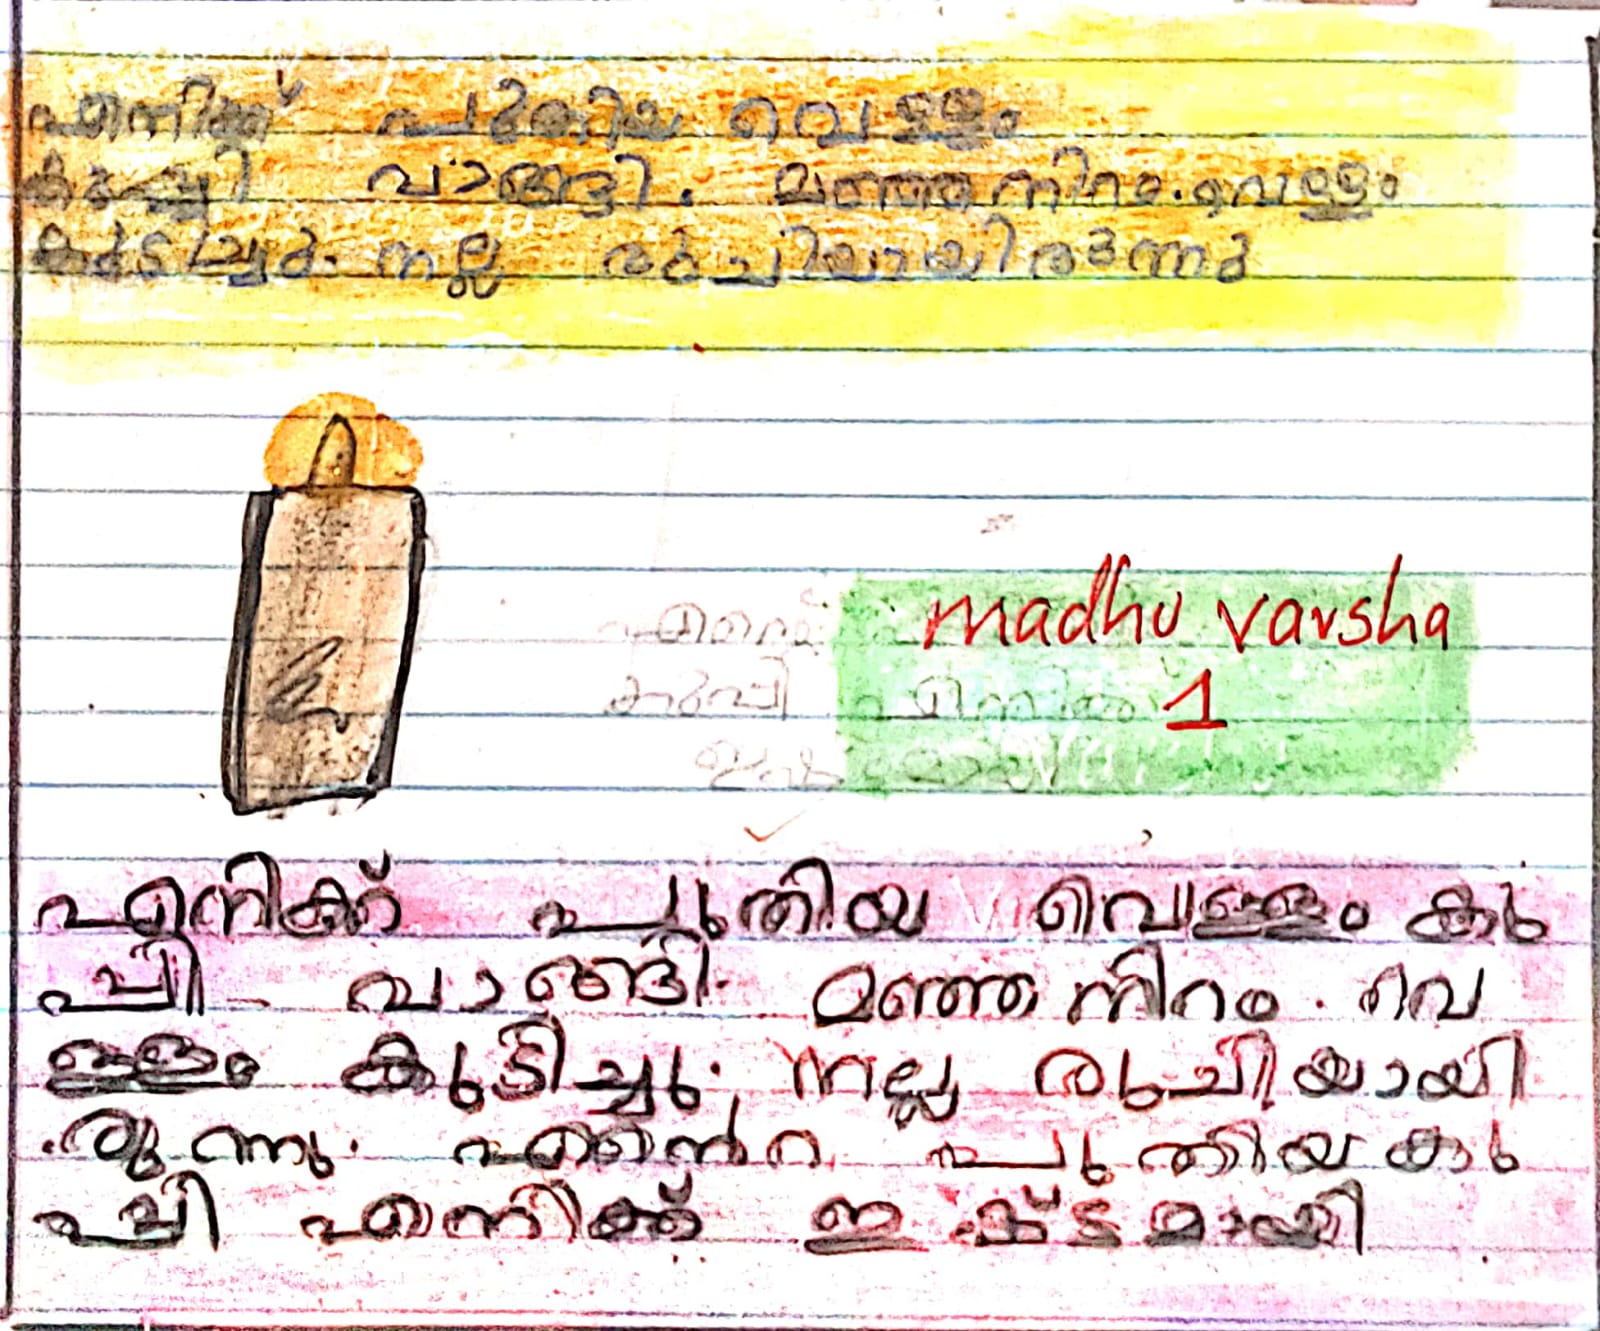 എനിക്ക് പുതിയ വെള്ളം
കുപ്പി വാങ്ങി. മഞ്ഞ നിറം. വെള്ളം
കുടിച്ചു. നല്ല രുചിയായിരുന്നു
madhu varsha
കുപ്പി എനിക്ക് 1
എനിക്ക് പുതിയ വെള്ളം കു
പ്പി വാങ്ങി. മഞ്ഞ നിറം. വെ
ള്ളം കുടിച്ചു. നല്ല രുചിയായി
രുന്നു. എൻെറ പുതിയ കു
പ്പി എനിക്ക് ഇഷ്ടമായി